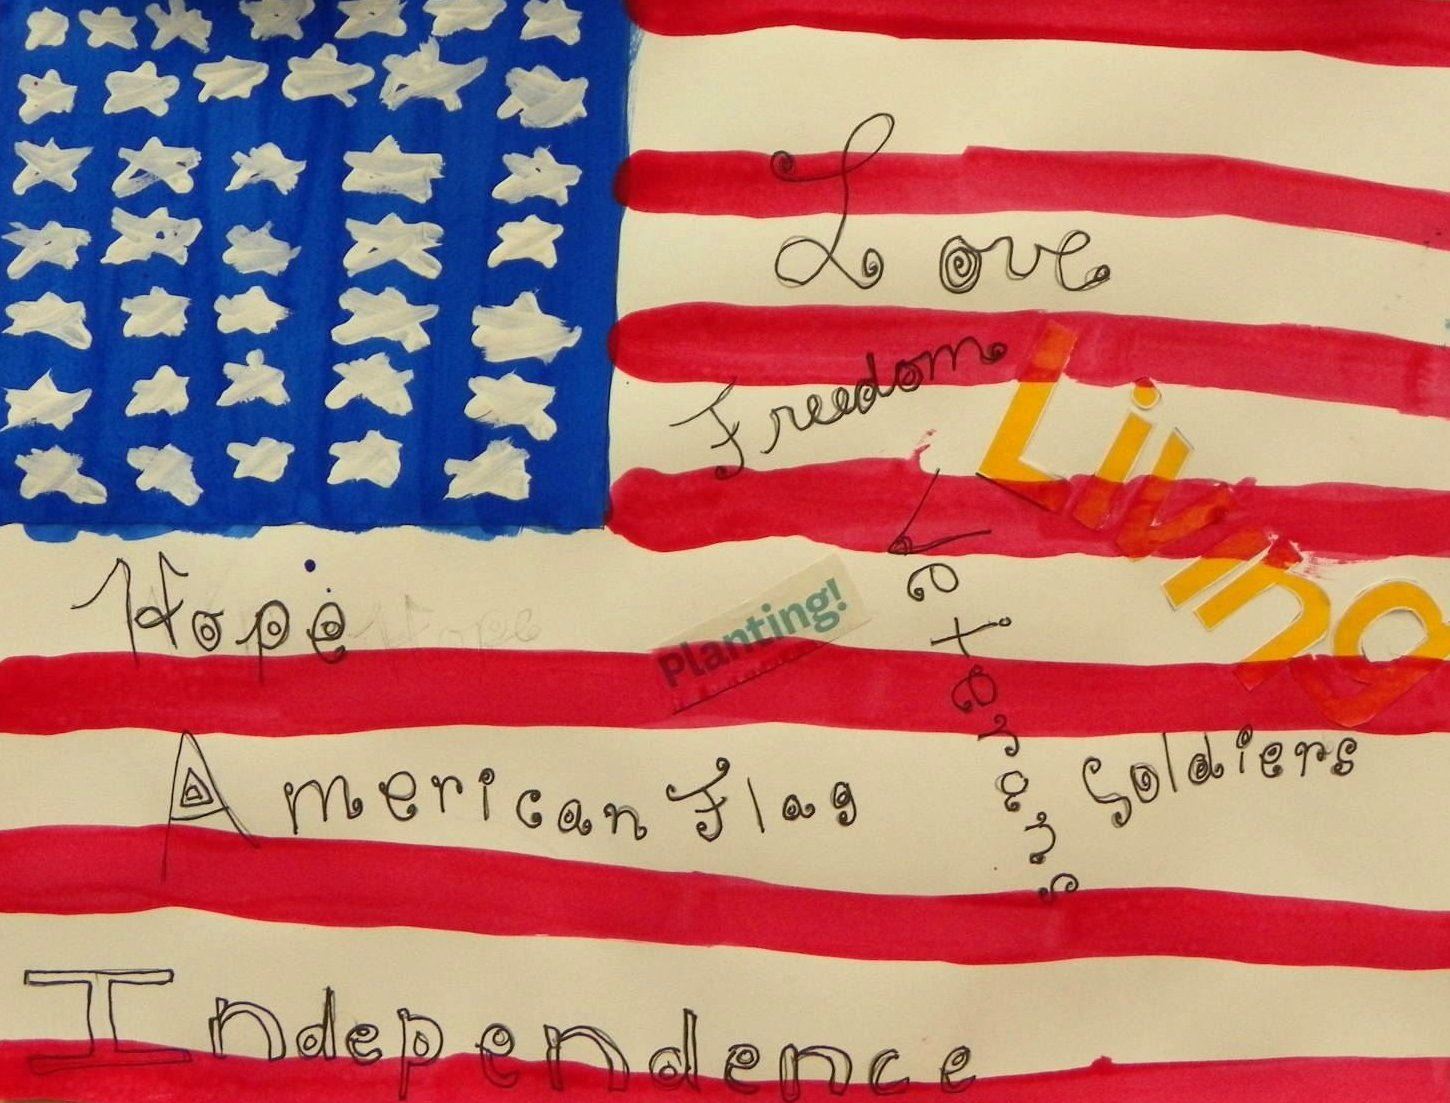 Love
Freedom
Living
Hope
Hope
Planting!
Veterans
American Flag
Soldiers
Independence